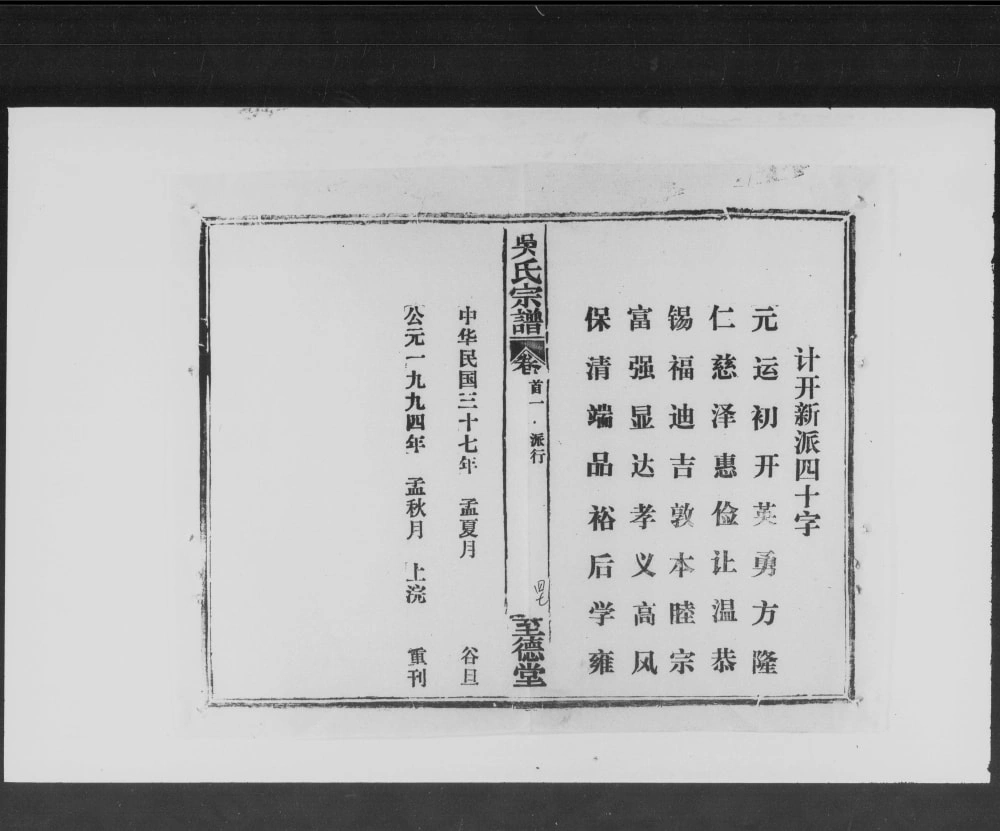 计开新派四十字
元运初开英勇方隆
仁慈泽惠俭让温恭
锡福迪吉敦本睦宗
富强显达孝义高风
保清端品裕后学雍
吳氏宗譜
卷首一·派行
至德堂
中华民国三十七年 孟夏月 谷旦
公元一九九四年 孟秋月 上浣 重刊